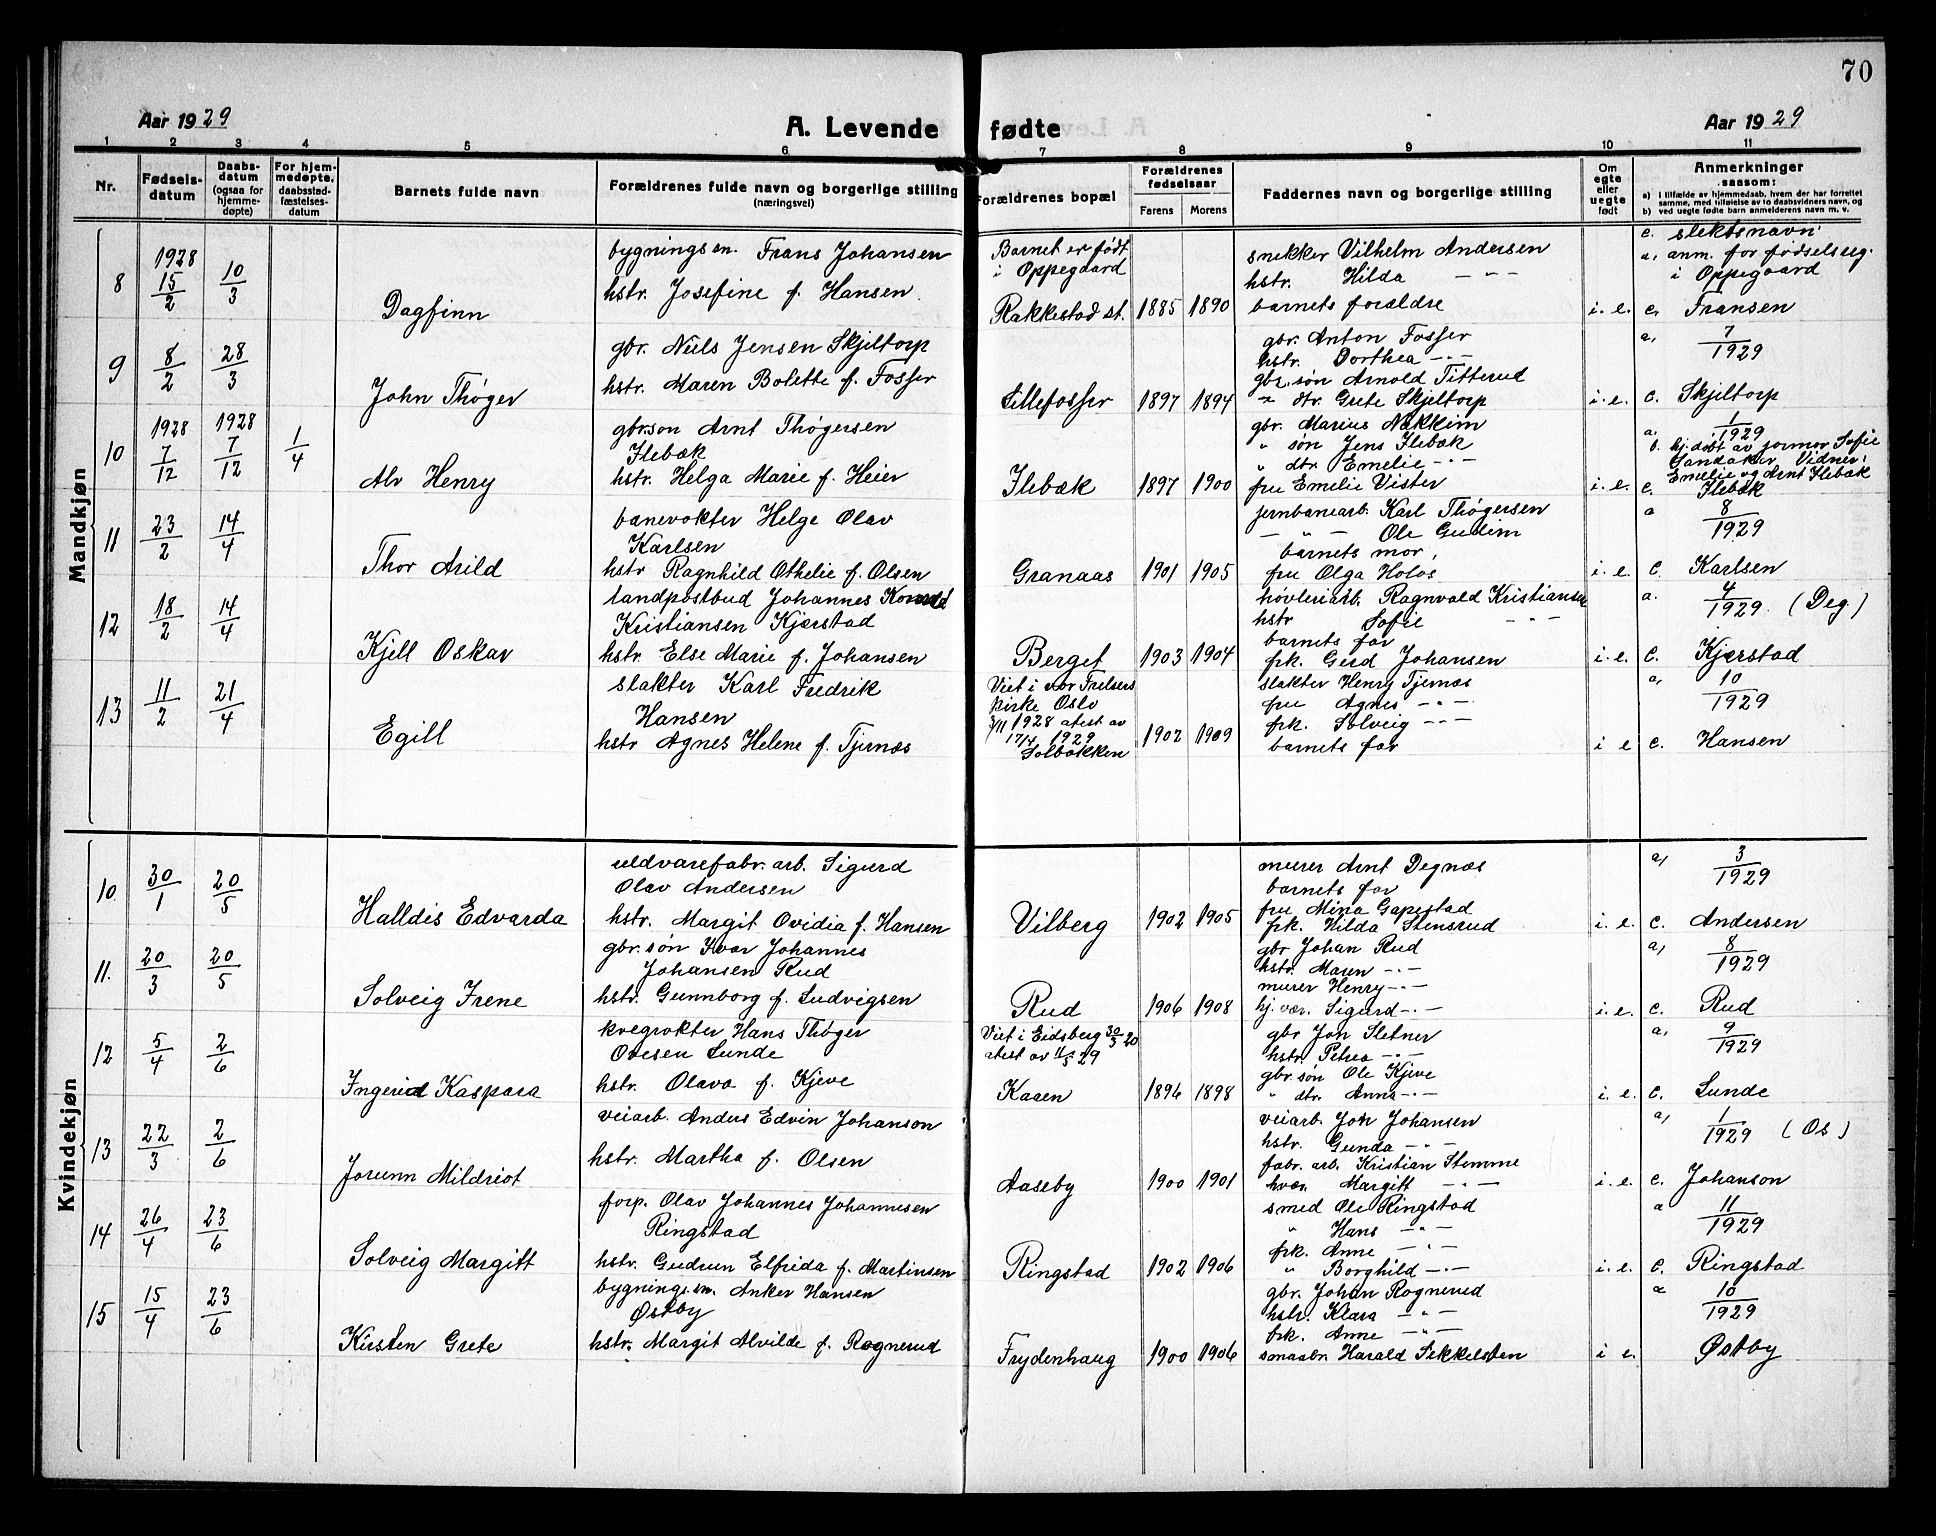 70
Aar 1929
A. Levende fødte
Aar 1929
1 2 3 4 5 6 7 8 9 10 11
Nr.
Fødsels-
datum
Daabs-
datum
(ogsaa for
hjemme-
døpte)
For hjem-
medøpte,
daabsstad-
fæstelses-
datum
Barnets fulde navn
Forældrenes fulde navn og borgerlige stilling
(næringsvei)
Forældrenes bopæl
Forældrenes
fødselsaar
Farens
Morens
Faddernes navn og borgerlige stilling
Om
egte
eller
uegte
født
Anmerkninger
saasom:
a) i tilfælde av hjemmedaab, hvem der har forrettet
samme, med tilføielse av to daabsvidners navn, og
b) ved uegte fødte barn anmelderens navn m. v.
Mandkjøn
8
1928
15/2
10/3
Dagfinn
bygningsm. Frans Johansen
hstr. Josefine f. Hansen
Barnet er født
i Oppegaard
Rakkestad st.
1885
1890
snekker Vilhelm Andersen
hstr. Hilda - " -
barnets forældre
i. e.
c. slektsnavn:
a, anm. for fødselsreg.
i Oppegaard
c. Fransen
9
8/2
28/3
John Thøger
gbr. Niels Jensen Skjeltorp
hstr. Maren Bolette f. Fosser
Lillefosser
1897
1894
gbr. Anton Fosser
hstr. Dorthea - " -
gbr. søn Arnold Titterud
" dtr. Grete Skjeltorp
i. e.
a, 7/1929
c. Skjeltorp
10
1928
7/12
1928
7/12
1/4
Alv Henry
gbr.søn Arnt Thøgersen
Ilebæk
hstr. Helga Marie f. Heier
Ilebæk
1897
1900
gbr. Marius Nækkim
" søn Jens Ilebæk
" dtr. Emelie - " -
fru Emelie Vister
i. e.
a, 1/1929
b. hj.døbt av jormor Sofie
Sandaker Vidner:
Emelie og Arnt Ilebæk
c. Ilebæk
11
23/2
14/4
Thor Arild
banevokter Helge Olav
Karlsen
hstr Ragnhild Othelie f. Olsen
Granaas
1901
1905
jernbanearb. Karl Thøgersen
- " - Ole Gudim
barnets mor,
fru Olga Holøs
i. e.
a 8/1929
c. Karlsen
12
18/2
14/4
Kjell Oskar
landpostbud Johannes Konrad
Kristiansen Kjærstad
hstr. Else Marie f. Johansen
Berget
1903
1904
høvleriarb. Ragnvald Kristiansen
hstr Sofie - " -
barnets far
frk. Gerd Johansen
i. e.
a. 4/1929. (Deg)
c. Kjærstad
13
11/2
21/4
Egill
slakter Karl Fredrik
Hansen
hstr Agnes Helene f. Tjernæs
Viet i vor Frelsers
kirke Oslo
3/11 1928 atest av
17/4 1929
Solbakken
1902
1909
slakter Henry Tjernæs
fru Agnes - " -
frk. Solveig - " -
barnets far
i e
a, 10/1929
c. Hansen
Kvindekjøn
10
30/1
20/5
Halldis Edvarda
uldvarefabr. arb. Sigurd
Olav Andersen
hstr. Margit Ovidia f. Hansen
Vilberg
1902
1905
murer Arnt Degnæs
barnets far
fru Mina Gapestad
frk. Hilda Stensrud
i. e.
a, 3/1929
c. Andersen
11.
20/3
20/5
Solveig Irene
gbr. søn Ivar Johannes
Johansen Rud
hstr. Gunnborg f. Ludvigsen
Rud
1906
1908
gbr Johan Rud
hstr. Maren - " -
murer Henry - " -
hj. vær. Sigurd - " -
i. e.
a, 8/1929
c. Rud
12
5/4
2/6
Ingerid Kaspara
kvegrøkter Hans Thøger
Ovesen Lunde
hstr. Olava f. Kjeve
Viet i Eidsberg 30/5 20
atest av 11/5 29
Kaaen
1896
1898
gbr Jon Sletner
hstr. Petra - " -
gbr. søn Ole Kjeve
" dtr. Anna - " -
i. e.
a, 9/1929
c. Lunde
13
22/3
2/6
Jorunn Mildriot
veiarb. Anders Edvin Johanson
hstr. Martha f. Olsen
Aaseby
1900
1901
veiarb. Jon Johansen
hstr. Gunda - " -
fabr. arb. Kristian Stemme
hvær. Margitt - " -
i. e.
a, 1/1929 (Os)
c. Johanson
14
26/4
23/6
Solveig Margitt
forp. Olav Johannes Johannesen
Ringstad
hstr. Gudrun Elfrida f. Martinsen
Ringstad
1902
1906
smed Ole Ringstad
" Hans - " -
frk. Anne - " -
" Borghild - " -
i. e.
a 11/1929
c. Ringstad
15
15/4
23/6
Kirsten Grete
bygningsm. Anker Hansen
Østby
hstr. Margit Alvilde f. Rognerud
Frydenhaug
1900
1906
gbr. Johan Rognerud
hstr. Klara - " -
frk. Anne - " -
smaabr. Harald Sikkelsten
i e.
a 10/1929
Østby